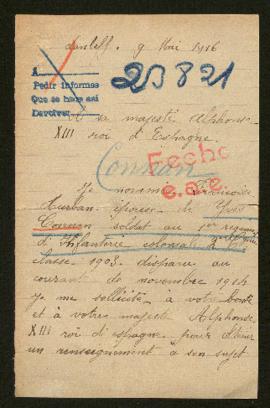 Lanleff. 9 Mai 1916
A
Pedir informes
Que se hace así
Devolver
23821
A sa majesté Alphonse
XIII roi d'Espagne
Fecho
e.a.e.
Je nommé Françoise
épouse de Yves
Connan soldat au 1er régiment
d'Infanterie coloniale
classe 1903. disparu au
courant de novembre 1914
je me sollicite à votre bonté
et à votres majesté Alphonse
XIII roi d'espagne pour obtenir
un renseignement à son sujet